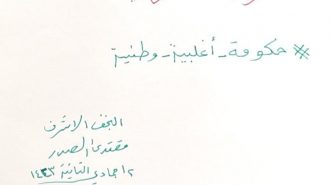 * حكومة - أغلبية - وطنية
النجف الاشرف
مقتدى الصدر
٢ جمادي الثانية ١٤٤٣